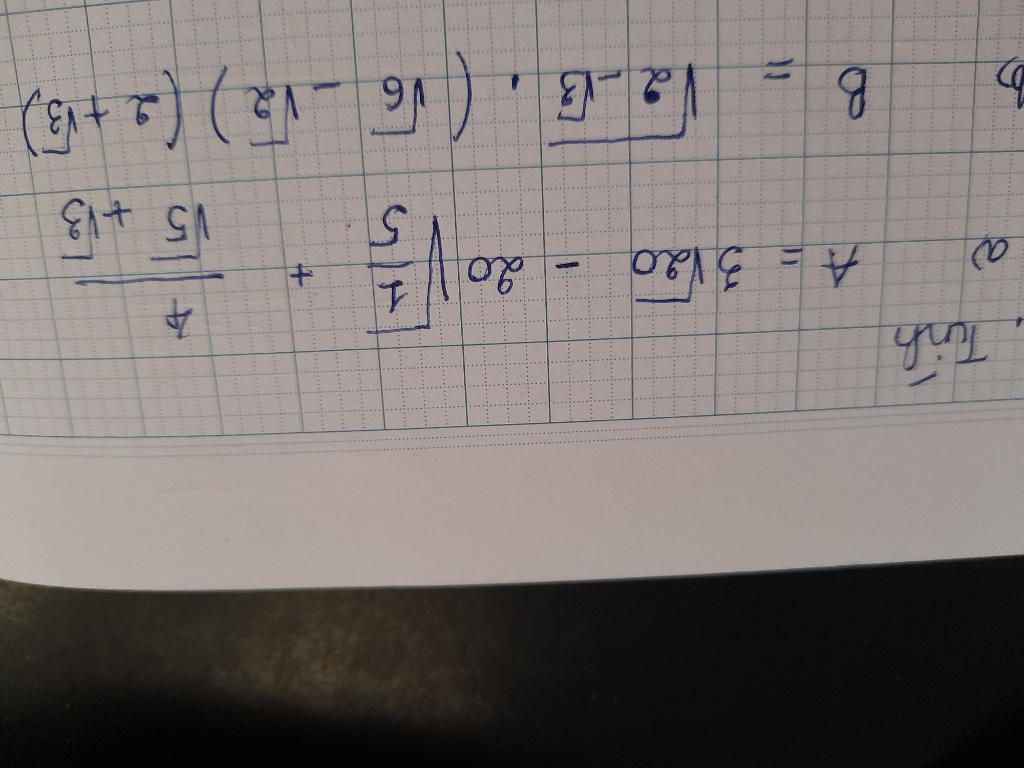 Tính
a) A = 3√20 - 20√(1/5) + 4/(√5 + √3)
b) B = √(2-√3) . (√6 - √2) (2+√3)